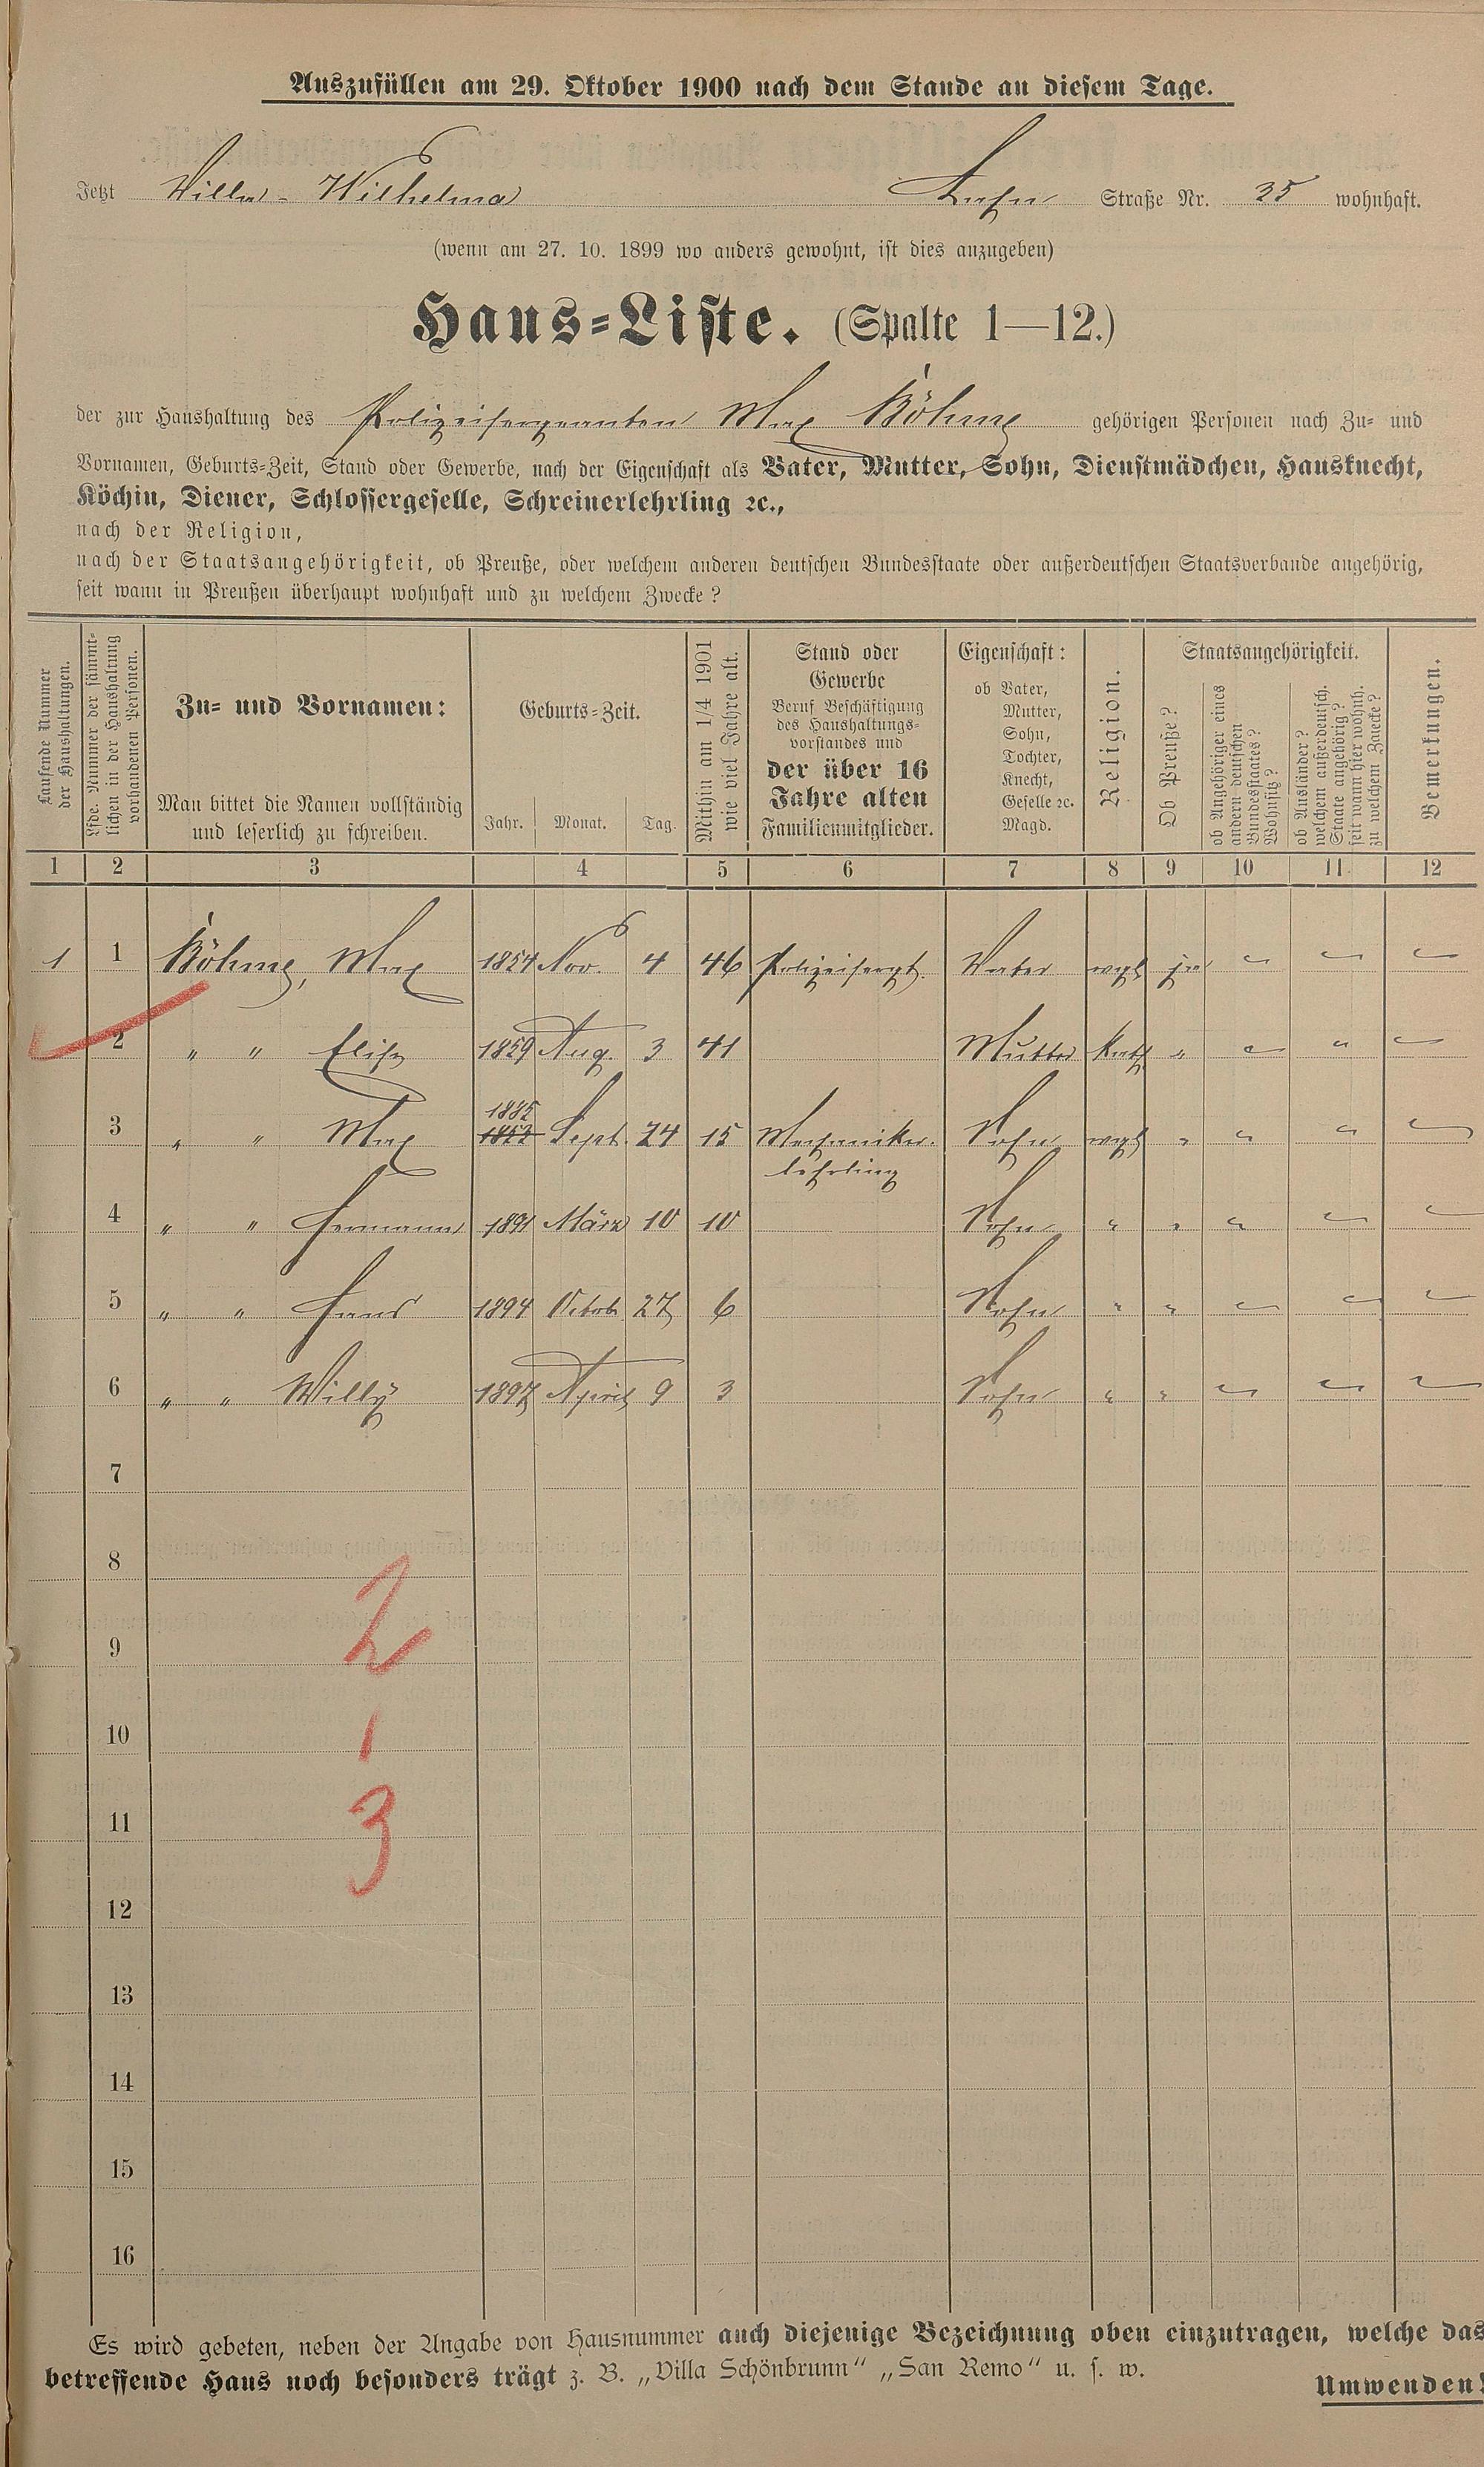 Auszufüllen am 29. Oktober 1900 nach dem Stande an diesem Tage.
Jetzt Villa-Wilhelma Straße Nr. 35 wohnhaft.
(wenn am 27. 10. 1899 wo anders gewohnt, ist dies anzugeben)
Haus-Liste. (Spalte 1—12.)
der zur Haushaltung des Polizeisergeanten Max Böhme gehörigen Personen nach Zu- und
Vornamen, Geburts-Zeit, Stand oder Gewerbe, nach der Eigenschaft als Vater, Mutter, Sohn, Dienstmädchen, Hausknecht,
Köchin, Diener, Schlossergeselle, Schreinerlehrling ꝛc.,
nach der Religion,
nach der Staatsangehörigkeit, ob Preuße, oder welchem anderen deutschen Bundesstaate oder außerdeutschen Staatsverbande angehörig,
seit wann in Preußen überhaupt wohnhaft und zu welchem Zwecke?
Laufende Nummer
der Haushaltungen.
Lfde. Nummer der sämmt-
lichen in der Haushaltung
vorhandenen Personen.
Zu- und Vornamen:
Man bittet die Namen vollständig
und leserlich zu schreiben.
Geburts-Zeit.
Jahr. Monat. Tag.
Mithin am 1/4 1901
wie viel Jahre alt.
Stand oder
Gewerbe
Beruf Beschäftigung
des Haushaltungs-
vorstandes und
der über 16
Jahre alten
Familienmitglieder.
Eigenschaft:
ob Vater,
Mutter,
Sohn,
Tochter,
Knecht,
Geselle ꝛc.
Magd.
Religion.
Staatsangehörigkeit.
Ob Preuße?
ob Angehöriger eines
andern deutschen
Bundesstaates?
Wohnsitz?
ob Ausländer?
welchem außerdeutsch.
Staate angehörig?
seit wann hier wohnh.
zu welchem Zwecke?
Bemerkungen.
1 2 3 4 5 6 7 8 9 10 11 12
1 1 Böhme, Max 1854 Nov. 4 46 Polizeisergt. Vater evgl ja
2 " " Elise 1859 Aug. 3 41 Mutter Kath. "
1885
3 " " Max 1853 Sept. 24 15 Mechaniker- Sohn evgl "
lehrling
4 " " Hermann 1891 März 10 10 Sohn " "
5 " " Hans 1894 Octob. 27 6 Sohn " "
6 " " Willÿ 1897 April 9 3 Sohn " "
7
8
2
9
10
1
11
3
12
13
14
15
16
Es wird gebeten, neben der Angabe von Hausnummer auch diejenige Bezeichnung oben einzutragen, welche das
betreffende Haus noch besonders trägt z. B. „Villa Schönbrunn“ „San Remo“ u. s. w.
Umwenden!